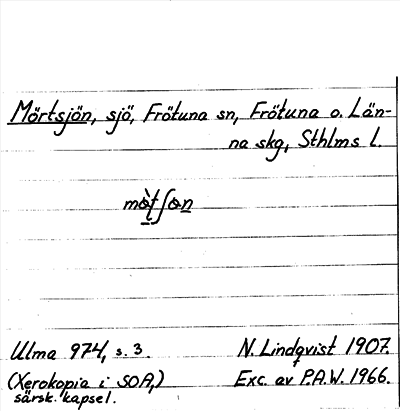 Mörtsjön, sjö, Frötuna sn, Frötuna o. Län-
na skg, Sthlms l.
Ulma 974, s. 3.
N. Lindqvist 1907.
(Xerokopia i SOA,)
Exc. av P.A.W. 1966.
särsk. kapsel.